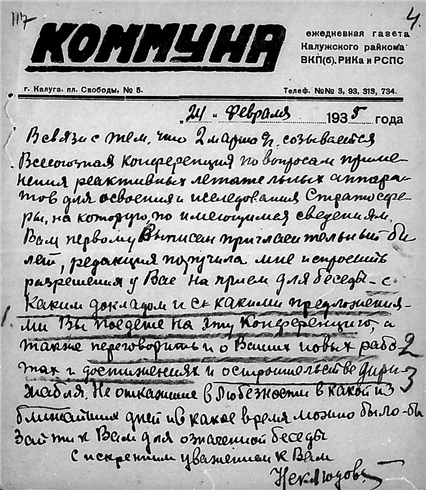 117
4.
КОММУНА
ежедневная газета
Калужского райкома
ВКП(б), РИКа и РСПС
г. Калуга, пл. Свободы, № 5.
Телеф. №№ 3, 93, 313, 734.
24 февраля 1935 года
В связи с тем, что 2 марта созывается
Всесоюзная Конференция по вопросам приме-
нения реактивных летательных аппара-
тов для освоения и исследования Стратосфе-
ры, на которую, по имеющимся сведениям,
Вам первому выписан пригласительный би-
лет, редакция поручила мне испросить
разрешения у Вас на прием для беседы - с
каким докладом и с какими предложения-
1. ми Вы поедете на эту Конференцию, а
также переговорить и о Ваших новых рабо- 2
тах и достижениях и о строительстве дири- 3
жабля. Не откажите в любезности в какой из
ближайших дней и в какое время можно было-бы
зайти к Вам для означенной беседы
с искренним уважением к Вам
Неклюдов